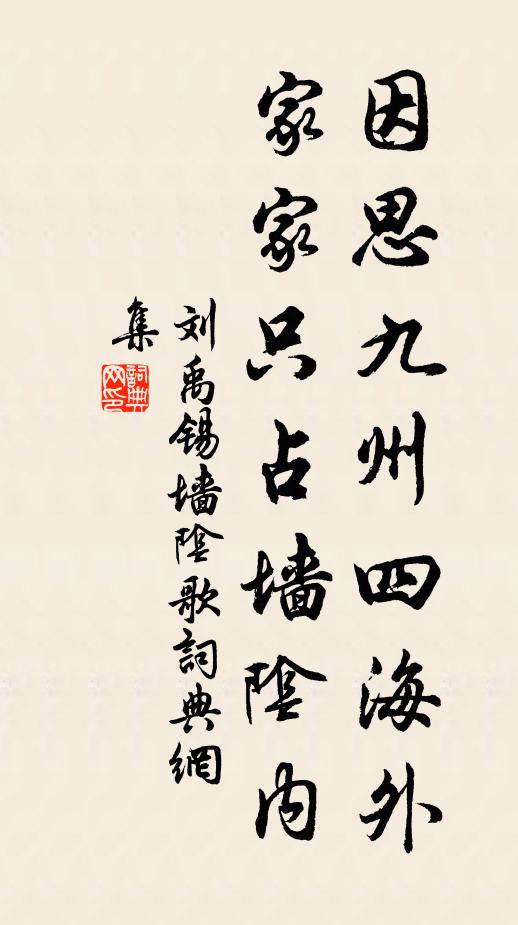 因思九州四海外
家家只占墙陰内
刘禹锡墙陰歌詞典網
集
詞典网印